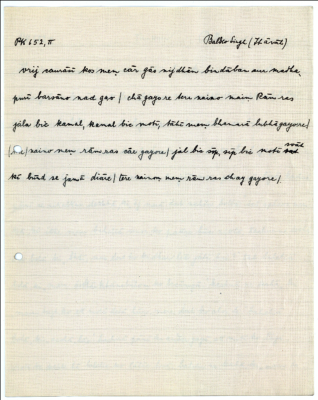 PK 652, II Balko Singh (Thārū)
vrij caurāsī kos mẽ, cār gāo nijdhām bindāban aur madhu
purī barsāno nad gao / chā gayore tere naino main Rām ras
jāla bic kamal, kamal bic moti, tahā mẽ bhanarā lubhā gayore /
naino mẽ rām ras cāe gayore / jal bic sīp, sīp bic moti svāti
kī būnd se jamā diāre / tore nainoṃ mẽ rām ras chāy gayore /